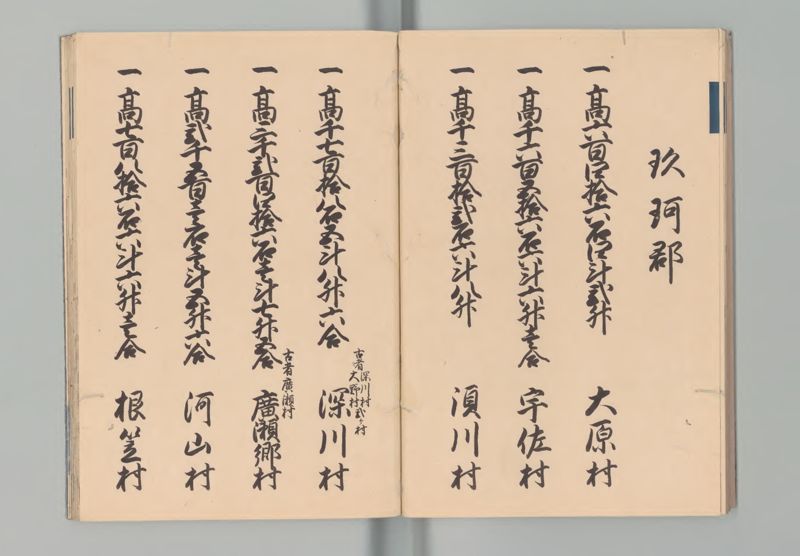 玖珂郡
一高六百四拾六石四斗弐升 大原村
一高千六百五拾六石六斗六升壱合 宇佐村
一高千三百拾弐石六斗八升 須川村
一高千七百拾八石五斗八升六合 深川村
古者深川村
大野村弐ヶ村
一高三千弐百四拾六石壱斗七升五合 廣瀬郷村
古者廣瀬村
一高弐千五百壱石壱斗五升六合 河山村
一高七百八拾六石六斗六升壱合 根笠村